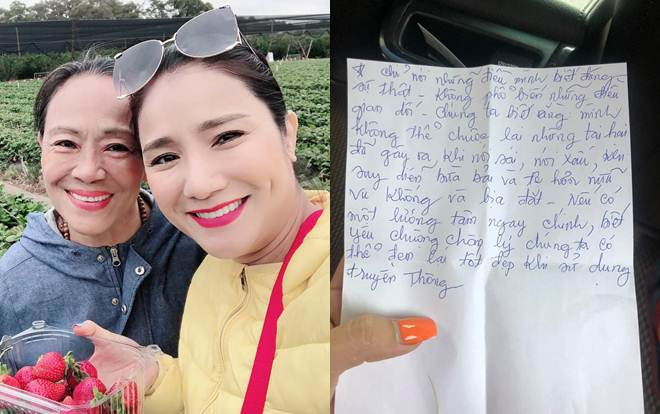 * chỉ nói những điều mình biết đúng
sự thật - Không phổ biến những điều
gian dối - Chúng ta biết rằng mình
không thể chữa lại những tai hại
đã gây ra khi nói sai, nói xấu,
suy diễn bừa bãi và tệ hơn nữa
Vu khống và bịa đặt - Nếu có
một lương tâm ngay chính, biết
yêu chuộng chân lý chúng ta có
thể đem lại tốt đẹp khi sử dụng
truyền thông